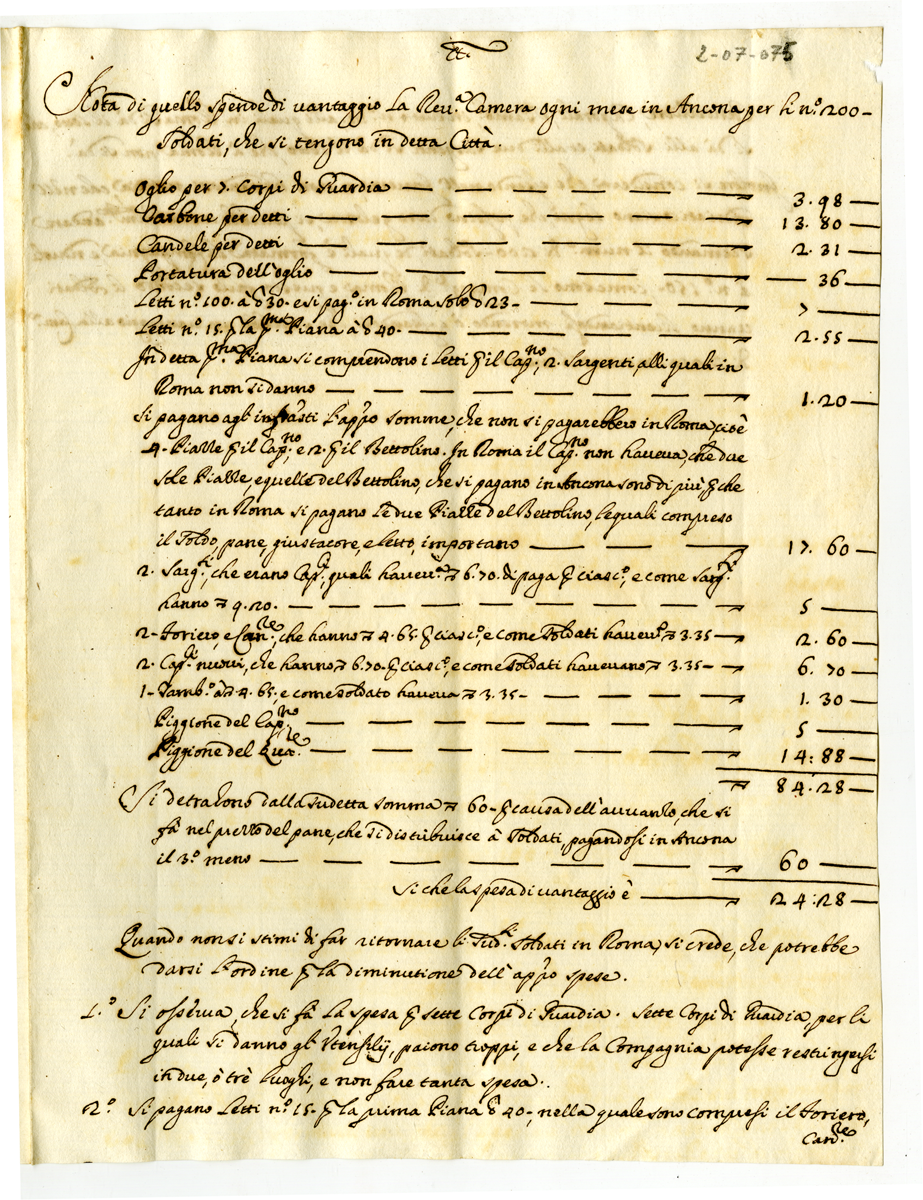 2-07-075
Nota di quello spende di vantaggio La Rev.a Camera ogni mese in Ancona per li n.o 200-
Soldati, che si tengono in detta Città.
Oglio per 7. Corpi di Guardia — 3.98 —
Carbone per detti — 13.80 —
Candele per detti — 2.31 —
Portatura dell'oglio — 36 —
Letti n.o 100. à 30. e si pag.o in Roma solo 23- — 7 —
Letti n.o 15. la p.ma Piana à 40- — 2.55 —
In detta p.ma Piana si comprendono i Letti il Cap.no, 2. Sargenti, alli quali in
Roma non si danno — 1.20 —
Si pagano agl' infr'asti l'app'o somme, che non si pagarebbero in Roma, cioè
4. Piazze il Cap.no, e 2. il Bettolino. In Roma il Cap.no non haveva, che due
sole Piazze, e quelle del Bettolino, che si pagano in Ancona sono di più, che
tanto in Roma si pagano Le due Piazze del Bettolino, le quali compreso
il Soldo, pane, giustacore, e Letto, importano — 17.60 —
2. Sarg.ti, che erano Cap.li, quali havev.o 6.70. di paga ciasc.o, e come Sarg.ti
hanno 9.20. — 5 —
2- Foriero, e Can.re, che hanno 4.65. ciasc.o, e come Soldati havev.o 3.35 — 2.60 —
2. Cap.li nuovi, che hanno 6.70 ciasc.o, e come Soldati havevano 3.35- — 6.70 —
1- Tamb.o à 4.65, e come soldato haveva 3.35- — 1.30 —
Piggione del Cap.no — 5 —
Piggione del Quar.re — 14:88 —
84.28 —
Si detrahono dalla sudetta somma 60- causa dell'avvanzo, che si
fà nel prezzo del pane, che si distribuisce à Soldati, pagandosi in Ancona
il 3.o meno — 60 —
Si che la spesa di vantaggio è — 24:28 —
Quando non si stimi di far ritornare li Sud.i Soldati in Roma, si crede, che potrebbe
darsi l'ordine la diminutione dell'app'o spese.
1.o Si osserva, che si fà La spesa sette Corpi di Guardia. Sette Corpi di Guardia, per li
quali si danno gl'Utensilij, paiono troppi, e che la Compagnia potesse restringersi
in due, ò trè luoghi, e non fare tanta spesa.
2.o Si pagano Letti n.o 15- la prima Piana 40-, nella quale sono compresi il Foriero,
Can.re